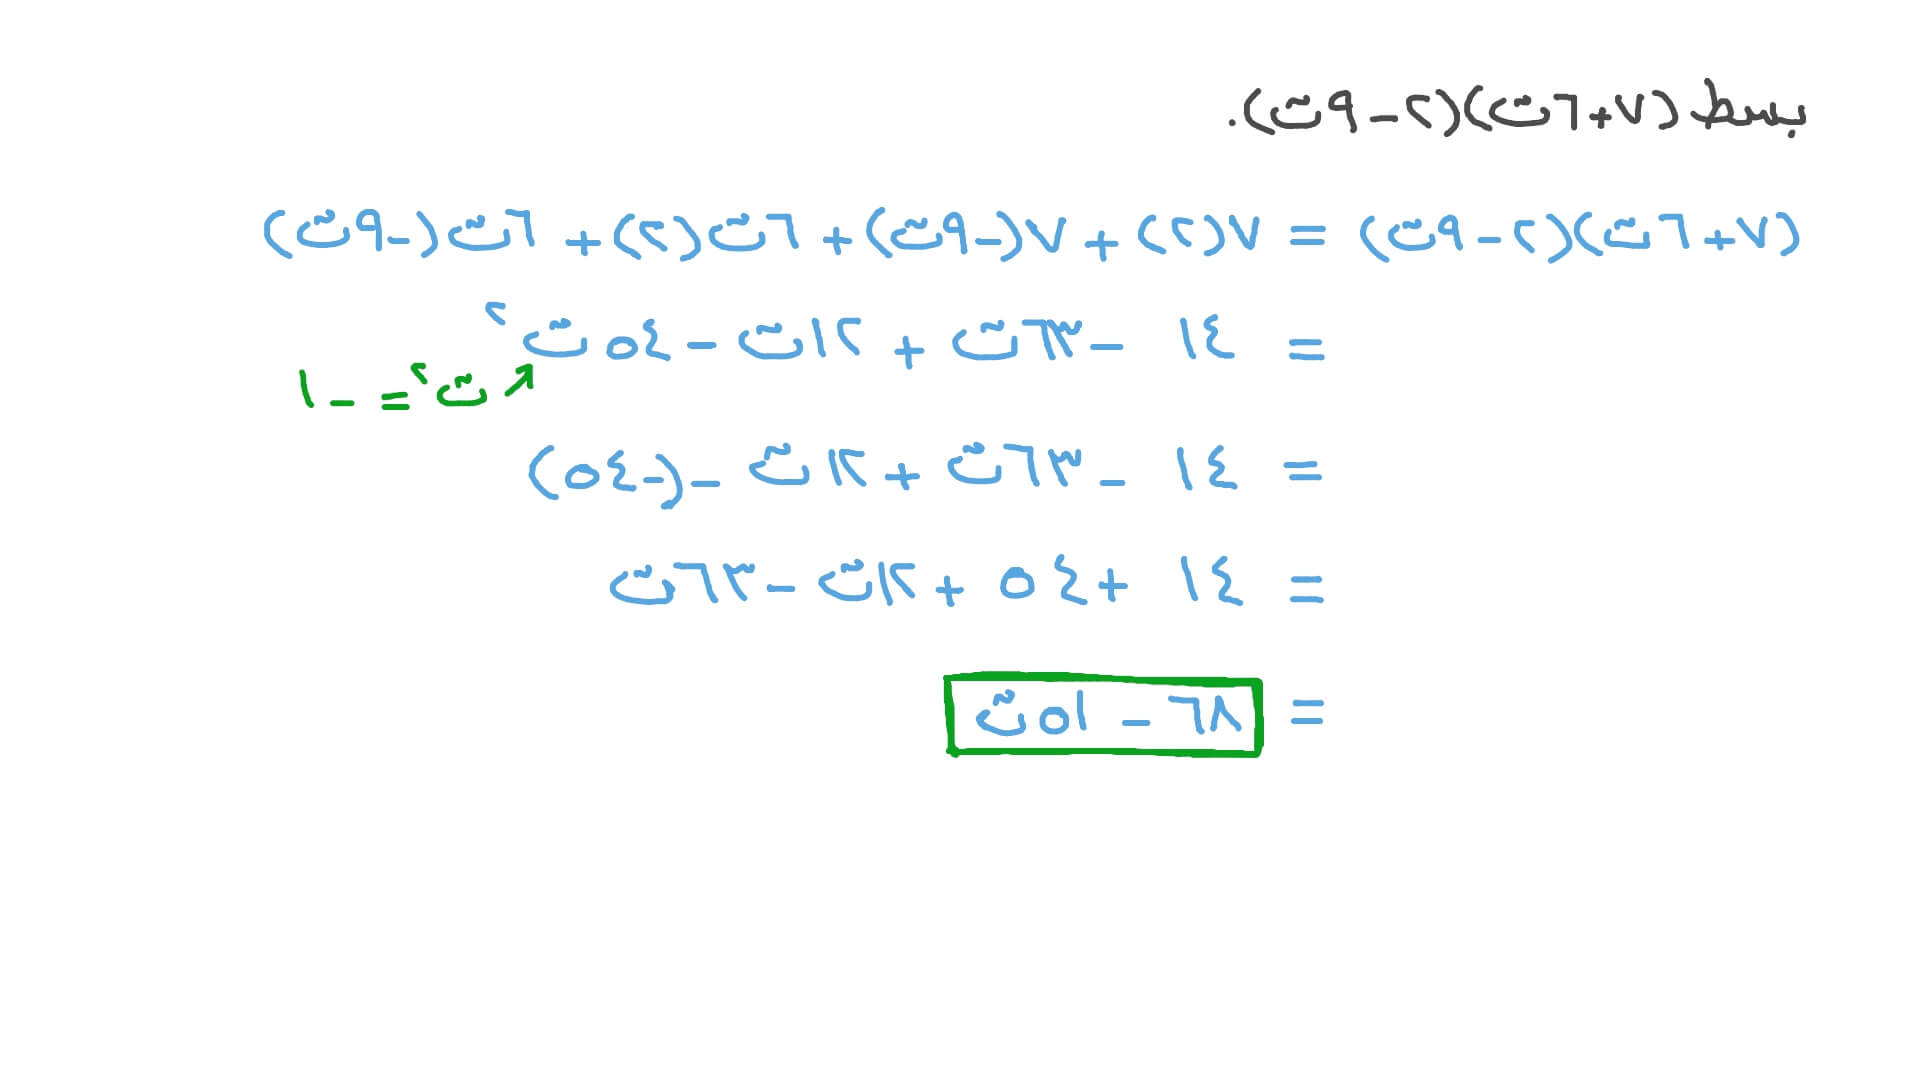 بسط (٧+٦ت)(٢−٩ت).
(٧+٦ت)(٢−٩ت) = ٧(٢) + ٧(−٩ت) + ٦ت(٢) + ٦ت(−٩ت)
= ١٤ − ٦٣ت + ١٢ت − ٥٤ت²
ت² = −١
= ١٤ − ٦٣ت + ١٢ت − (−٥٤)
= ١٤ + ٥٤ + ١٢ت − ٦٣ت
= ٦٨ − ٥١ت